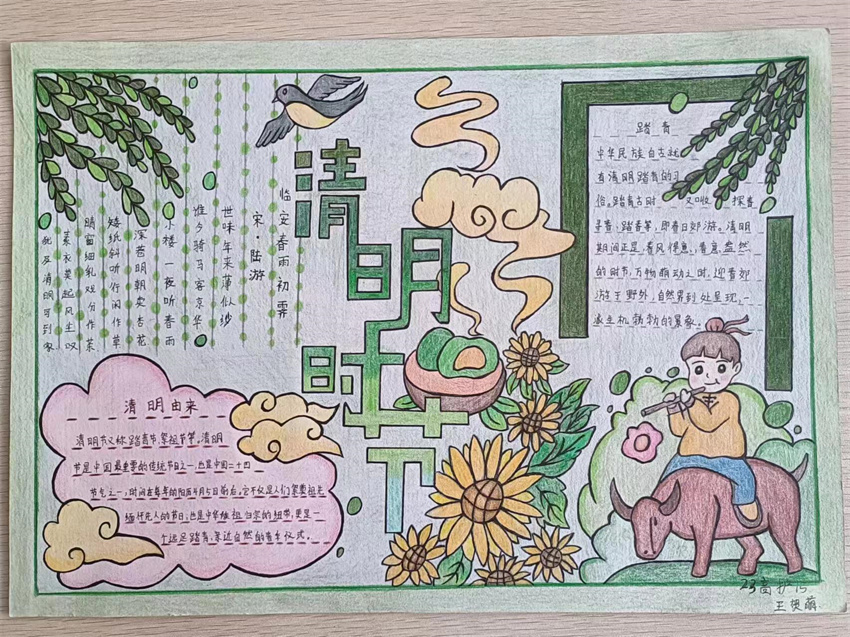 清明时节
临安春雨初霁
宋·陆游
世味年来薄似纱
谁令骑马客京华
小楼一夜听春雨
深巷明朝卖杏花
矮纸斜行闲作草
晴窗细乳戏分作茶
素衣莫起风尘叹
犹及清明可到家
踏青
中华民族自古就
有清明踏青的习
俗。踏青古时 又叫 探春
寻春、踏春等,即春日郊游。清明
期间正是 春风 春意 盎然
的时节,万物萌动之时,迎春郊
游于野外,自然界到处呈现一
派生机勃勃的景象。
清明由来
清明节又称踏青节、祭祖节等。清明
节是中国最重要的传统节日之一,也是中国二十四
节气之一,时间在每年的阳历4月5日前后,它不仅是人们祭奠祖先
缅怀先人的节日,也是中华 祖归宗的纽带,更是一
个远足踏青、亲近自然的春季仪式。
23高护15
王贺萌